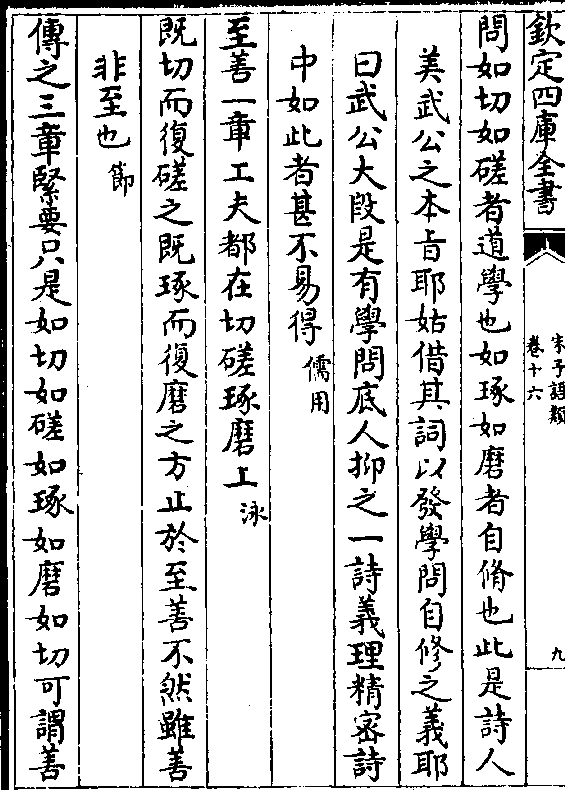 欽定四庫全書
朱子語類
卷十六
九
問如切如磋者道學也如琢如磨者自脩也此是詩人
美武公之本旨耶姑借其詞以發學問自修之義耶
曰武公大段是有學問底人抑之一詩義理精密詩
中如此者甚不易得 儒用
至善一章工夫都在切磋琢磨上 泳
既切而復磋之既琢而復磨之方止於至善不然雖善
非至也 節
傳之三章緊要只是如切如磋如琢如磨如切可謂善